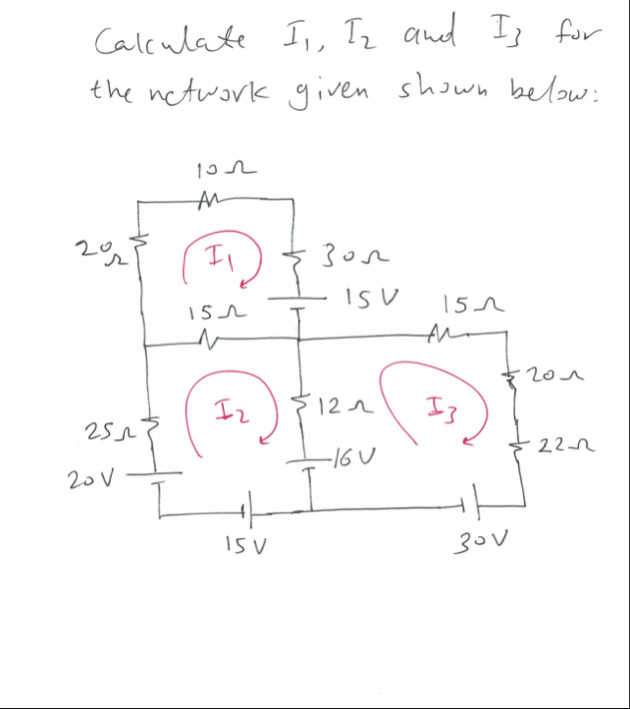 Calculate I₁, I₂ and I₃ for
the network given shown below:
10Ω
20Ω
I₁
30Ω
15V
15Ω
15Ω
20Ω
I₂
12Ω
I₃
25Ω
22Ω
16V
20V
15V
30V